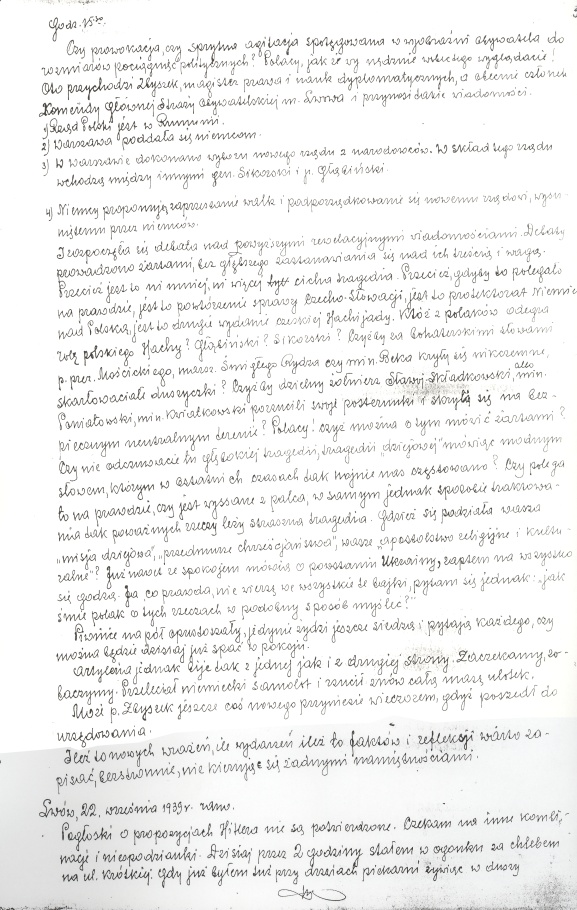 Godz. 15³⁰.
Czy prowokacja, czy sprytna agitacja spotęgowana w wyobraźni obywatela do
rozmiarów pociągnięć politycznych? Polacy, jakże wy nędznie wskutek tego wyglądacie!
Oto przychodzi Zbyszek, magister prawa i nauk dyplomatycznych, a obecnie członek
Komendy Głównej Straży Obywatelskiej m. Lwowa i przynosi takie wiadomości.
1) Rząd Polski jest w Rumunii.
2) Warszawa poddała się niemcom.
3) W Warszawie dokonano wyboru nowego rządu z narodowców. W skład tego rządu
wchodzą między innymi gen. Sikorski i p. Głąbiński.
4) Niemcy proponują zaprzestanie walk i podporządkowanie się nowemu rządowi, wysu-
niętemu przez niemców.
I rozpoczęła się debata nad powyższymi rewelacyjnymi wiadomościami. Debatę
prowadzono żartami, bez głębszego zastanawiania się nad ich treścią i wagą.
Przecież jest to ni mniej, ni więcej tylko cicha tragedia. Przecież, gdyby to polegało
na prawdzie, jest to powtórzenie sprawy Czecho-Słowacji, jest to protektorat Niemiec
nad Polską, jest to drugie wydanie czeskiej Hachijady. Któż z polaków odegra
rolę polskiego Hachy? Głąbiński? Sikorski? Czyżby za bohaterskimi słowami
p. prez. Mościckiego, marsz. Śmigłego Rydza czy min. Becka kryły się nikczemne,
skarłowaciałe duszyczki? Czyżby dzielny żołnierz Sławoj-Składkowski, albo min.
Poniatowski, min. Kwiatkowski porzucili swoje posterunki i skryli się na bez-
piecznym neutralnym terenie? Polacy! czyż można o tym mówić żartami?
Czy nie odczuwacie tu głębokiej tragedii, tragedii „dziejowej" mówiąc modnym
słowem, którym w ostatnich czasach tak hojnie nas częstowano? Czy polega
to na prawdzie, czy jest wyssane z palca, w samym jednak sposobie traktowa-
nia tak poważnych rzeczy leży straszna tragedia. Gdzież się podziała wasza
„misja dziejowa", „przedmurze chrześcijaństwa", wasze „apostolstwo religijne i kultu-
ralne"? Już nawet ze spokojem mówią o powstaniu Ukrainy, zaptem na wszystko
się godzą. Ja co prawda, nie wierzę we wszystkie te bajki, pytam się jednak: „jak
śmie polak o tych rzeczach w podobny sposób myśleć?"
Piwnice na pół opustoszały, jedynie żydzi jeszcze siedzą i pytają każdego, czy
można będzie dzisiaj już spać w pokoju.
Artyleria jednak bije tak z jednej jak i z drugiej strony. Zaczekamy, zo-
baczymy. Przeleciał niemiecki samolot i rzucił znów całą masę ulotek.
Może p. Zbyszek jeszcze coś nowego przyniesie wieczorem, gdyż poszedł do
urzędowania.
Ileż to nowych wrażeń, ile wydarzeń ileż to faktów i refleksji warto za-
pisać, bezstronnie, nie kierując się żadnymi namiętnościami.
Lwów, 22. września 1939 r. rano.
Pogłoski o propozycjach Hitlera nie są potwierdzone. Czekam na inne kombi-
nacje i niespodzianki. Dzisiaj przez 2 godziny stałem w ogonku za chlebem
na ul. Krótkiej. Gdy już byłem tuż przy drzwiach piekarni żywiąc w duszy